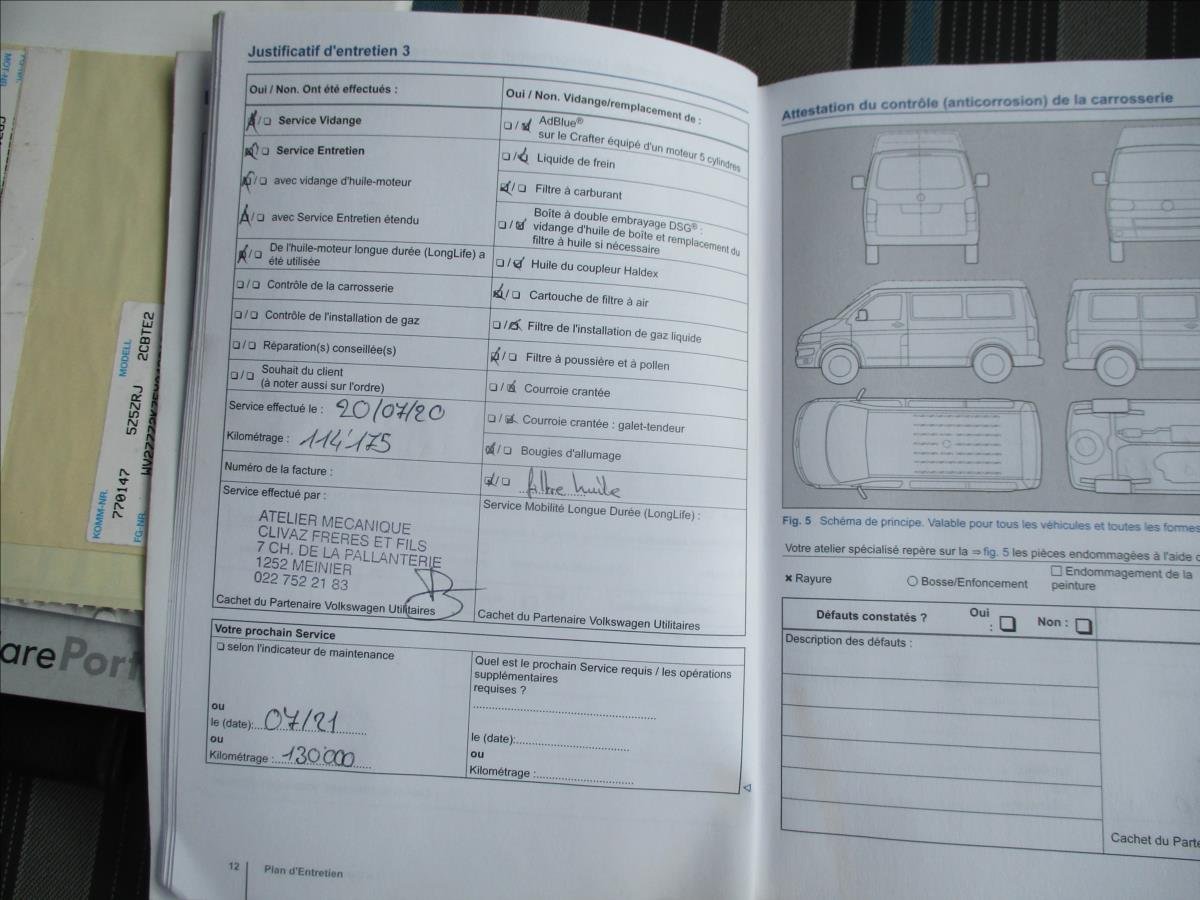 Justificatif d'entretien 3
Oui / Non. Ont été effectués :
Service Vidange
Service Entretien
avec vidange d'huile-moteur
avec Service Entretien étendu
De l'huile-moteur longue durée (LongLife) a
été utilisée
Contrôle de la carrosserie
Contrôle de l'installation de gaz
Réparation(s) conseillée(s)
Souhait du client
(à noter aussi sur l'ordre)
Service effectué le : 20/07/20
Kilométrage : 114'175
Numéro de la facture :
Service effectué par :
ATELIER MECANIQUE
CLIVAZ FRERES ET FILS
7 CH. DE LA PALLANTERIE
1252 MEINIER
022 752 21 83
Cachet du Partenaire Volkswagen Utilitaires
Oui / Non. Vidange/remplacement de :
AdBlue®
sur le Crafter équipé d'un moteur 5 cylindres
Liquide de frein
Filtre à carburant
Boîte à double embrayage DSG® :
vidange d'huile de boîte et remplacement du
filtre à huile si nécessaire
Huile du coupleur Haldex
Cartouche de filtre à air
Filtre de l'installation de gaz liquide
Filtre à poussière et à pollen
Courroie crantée
Courroie crantée : galet-tendeur
Bougies d'allumage
filtre huile
Service Mobilité Longue Durée (LongLife) :
Cachet du Partenaire Volkswagen Utilitaires
Votre prochain Service
selon l'indicateur de maintenance
ou
le (date): 07/21
ou
Kilométrage : 130'000
Quel est le prochain Service requis / les opérations
supplémentaires
requises ?
le (date):
ou
Kilométrage :
12 Plan d'Entretien
Attestation du contrôle (anticorrosion) de la carrosserie
Fig. 5 Schéma de principe. Valable pour tous les véhicules et toutes les formes
Votre atelier spécialisé repère sur la ⇒ fig. 5 les pièces endommagées à l'aide
× Rayure
Bosse/Enfoncement
Endommagement de la
peinture
Défauts constatés ?
Oui
:
Non :
Description des défauts :
Cachet du Parte
KOMM-NR.
770147
FG-NR.
5Z5ZRJ
MODELL
2CBTE2
MOT-NR.
arePort